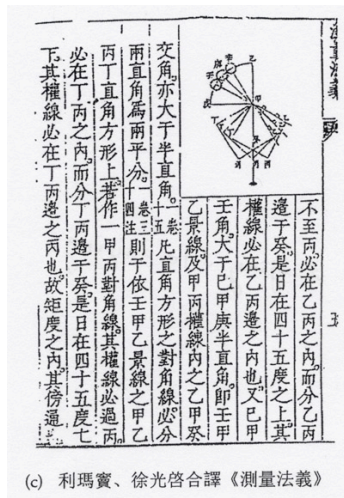 測量法義
不至丙。必在乙丙之內。而分乙丙
邊于癸。是日在四十五度之上。其
權線必在乙丙邊之內也。又己甲
壬角。大于己甲庚半直角。即壬甲
乙景線。及甲丙權線內之乙甲癸
交角。亦大于半直角。十五凡直角方形之對角線。必分
兩直角爲兩平分。一卷三十四注則于依壬甲乙景線之甲乙
丙丁直角方形上。若作一甲丙對角線。其權線必過丙
必在丁丙之內。而分丁丙邊于癸。是日在四十五度七
下。其權線必在丁丙邊之丙也。故矩度之內。其傍通
(c) 利瑪竇、徐光啓合譯《測量法義》